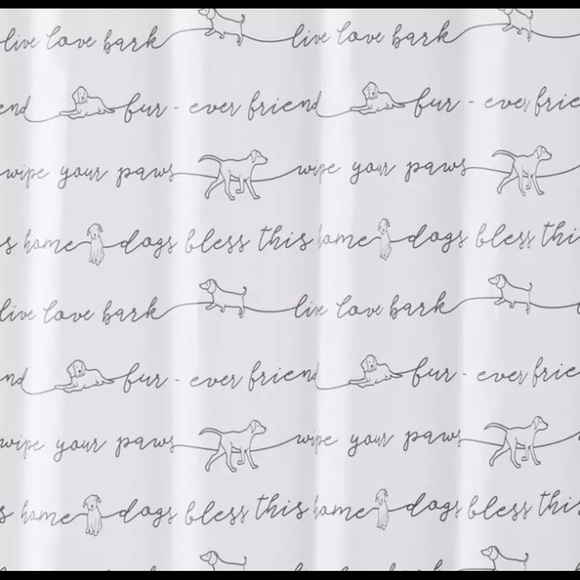 live love bark live love bark
end fur - ever friend fur - ever frie
wipe your paws wipe your paws
s home dogs bless this home dogs bless thi
live love bark live love bark
nd fur - ever friend fur - ever frie
wipe your paws wipe your paws
s home dogs bless this home dogs bless this